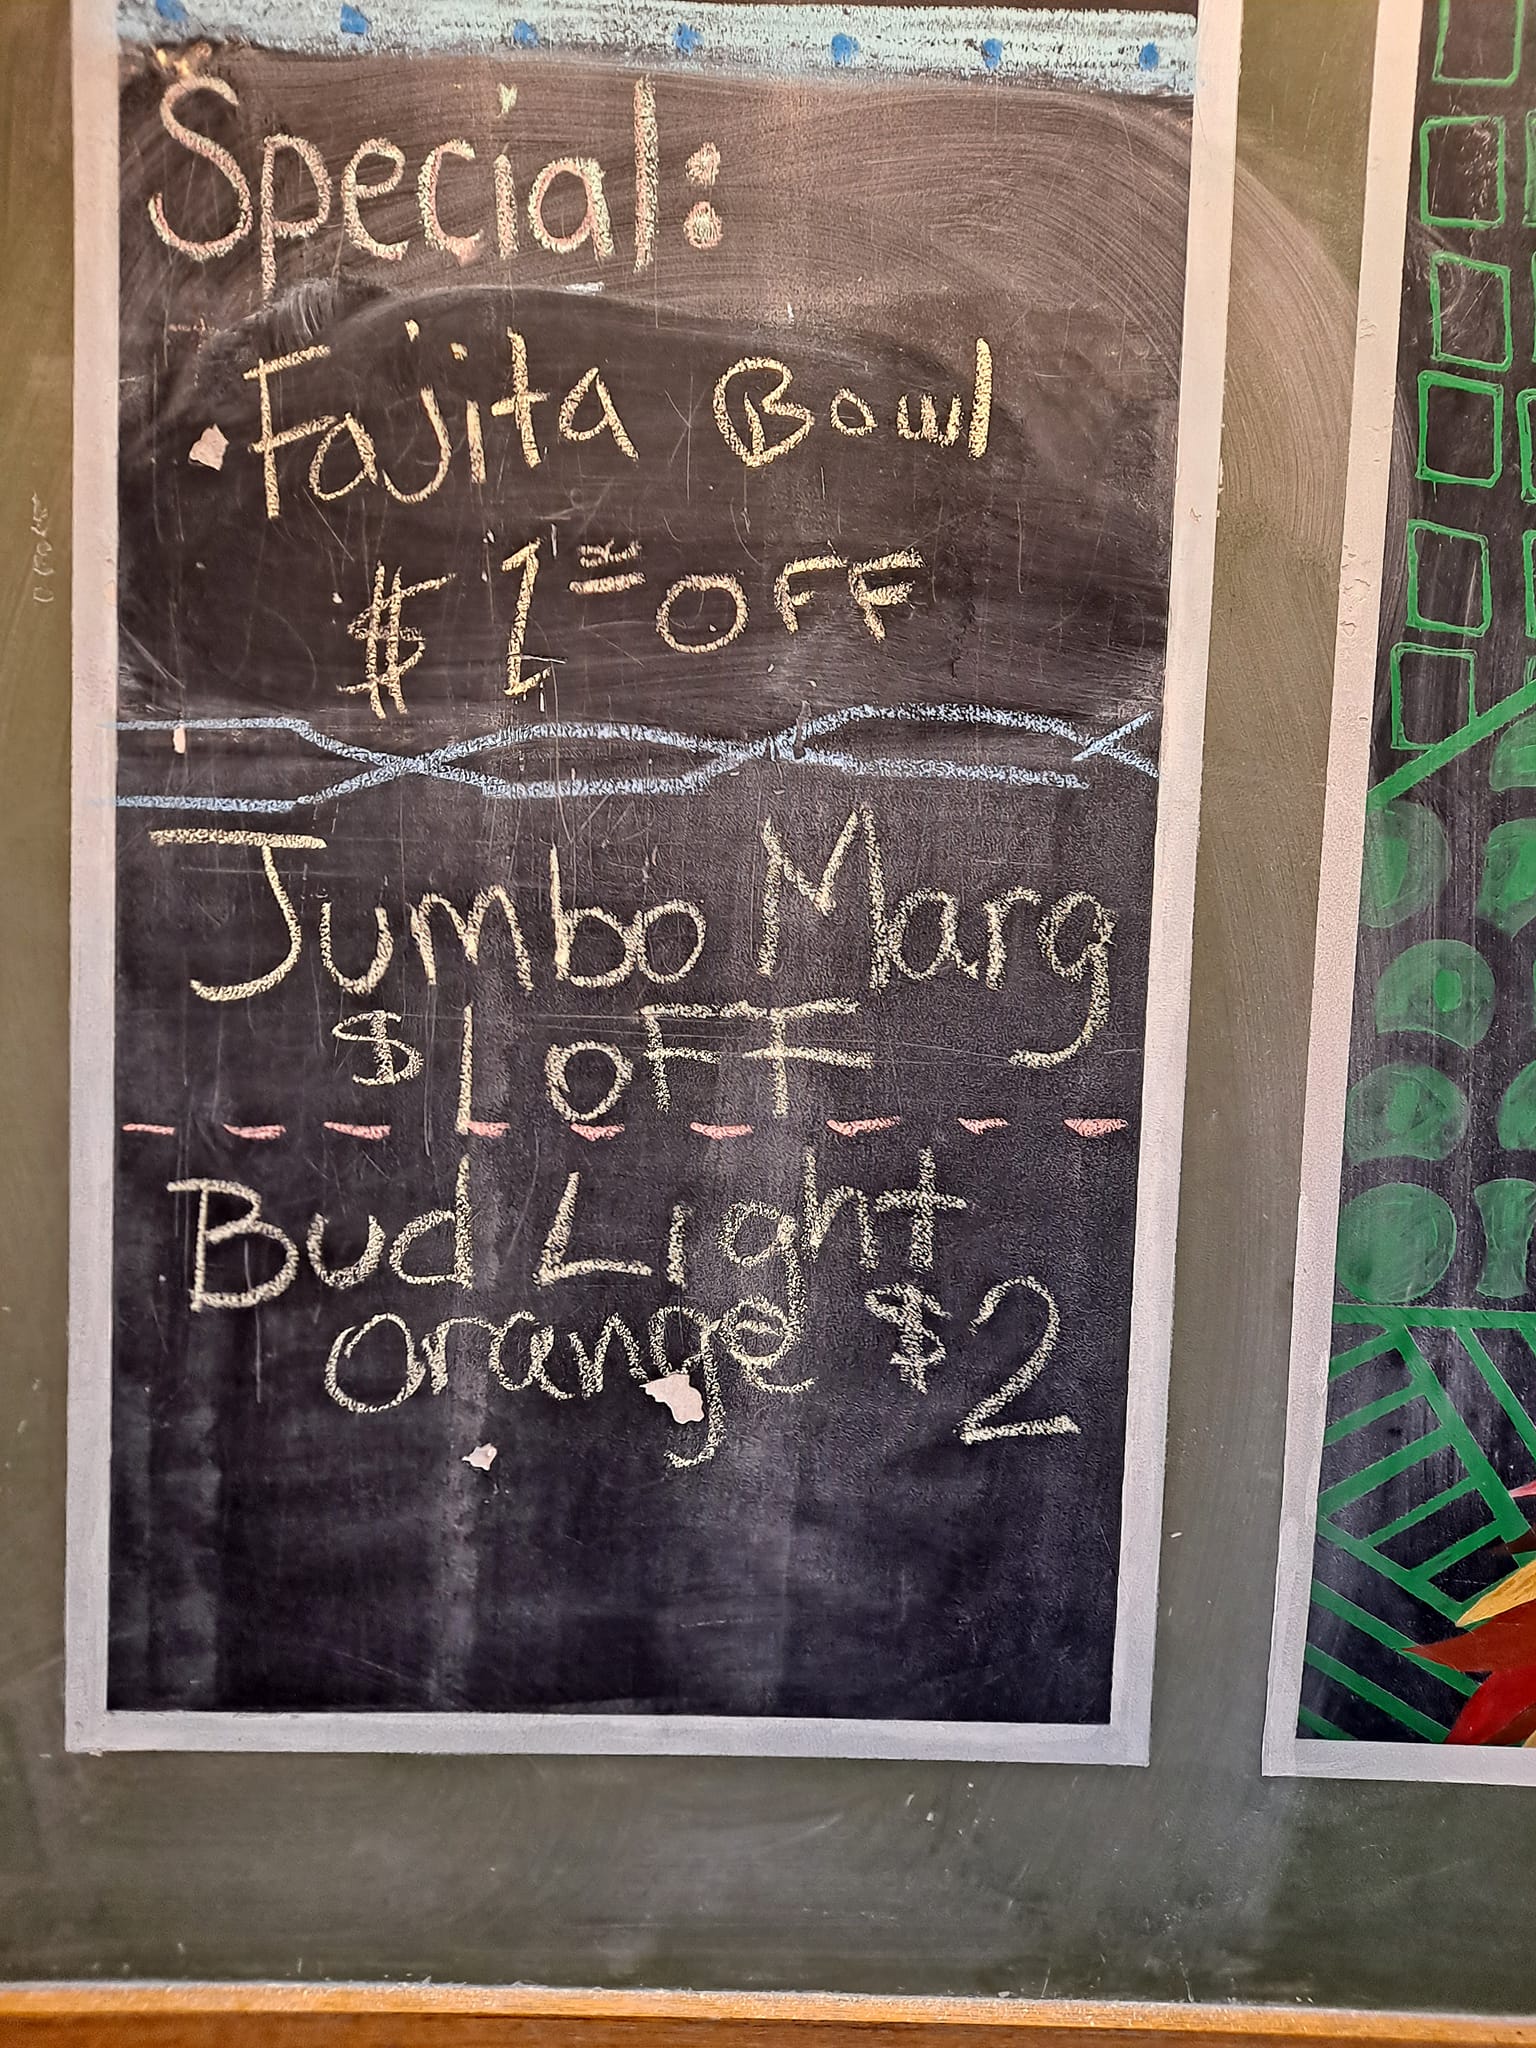 Special:
• Fajita Bowl
$ 1 OFF
Jumbo Marg
$1 OFF
Bud Light
orange $2